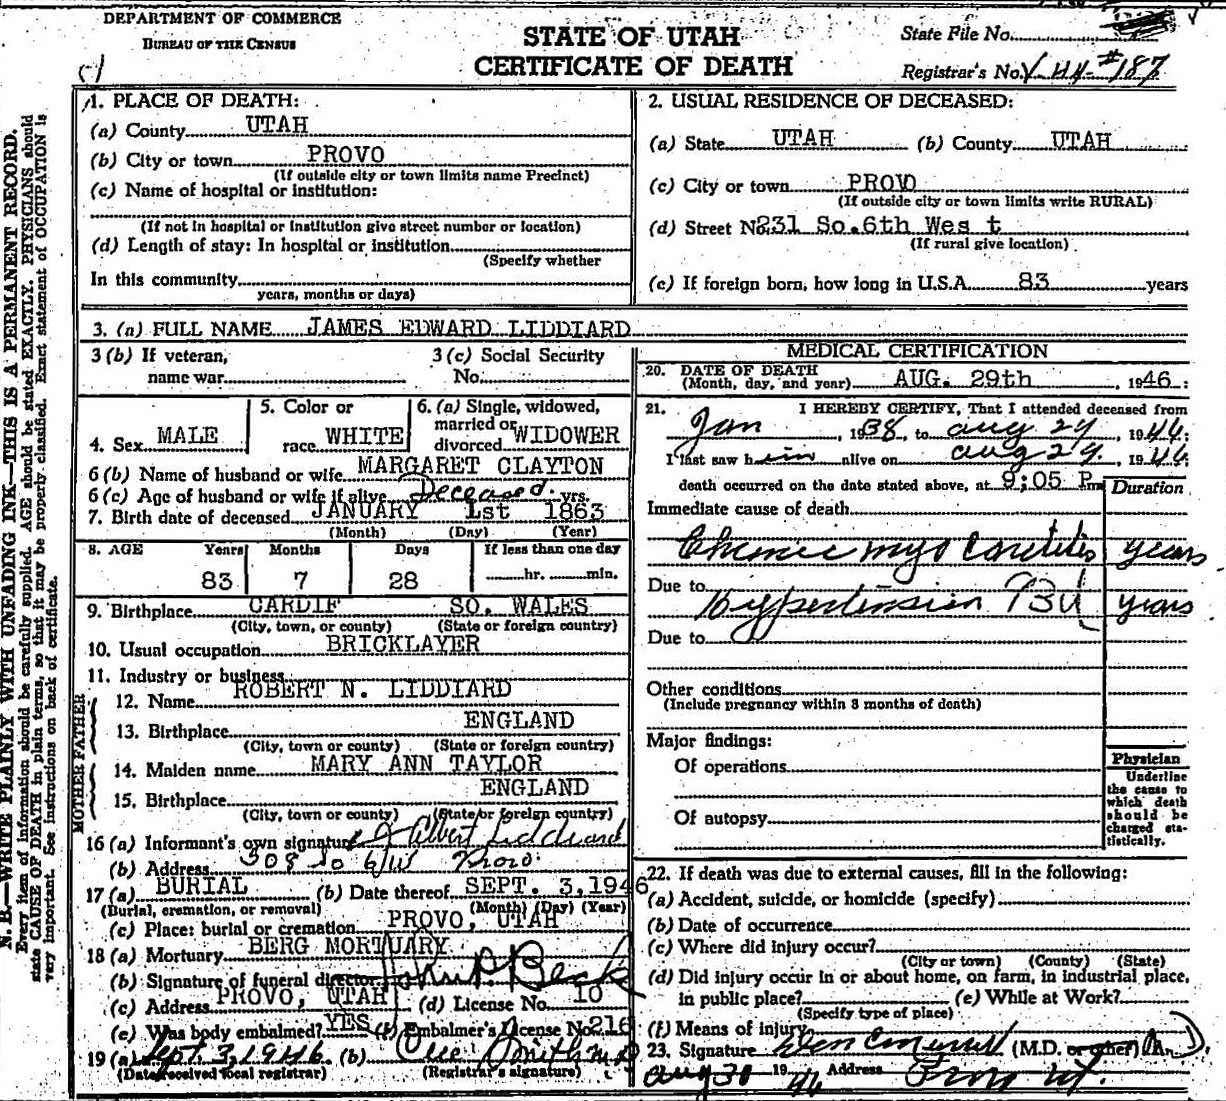 DEPARTMENT OF COMMERCE
BUREAU OF THE CENSUS
STATE OF UTAH
CERTIFICATE OF DEATH
State File No.
Registrar's No. #187
N. B.—WRITE PLAINLY WITH UNFADING INK—THIS IS A PERMANENT RECORD.
Every item of information should be carefully supplied. AGE should be stated EXACTLY. PHYSICIANS should
state CAUSE OF DEATH in plain terms, so that it may be properly classified. Exact statement of OCCUPATION is
very important. See instructions on back of certificate.
1. PLACE OF DEATH:
(a) County UTAH
(b) City or town PROVO
(If outside city or town limits name Precinct)
(c) Name of hospital or institution:
(If not in hospital or institution give street number or location)
(d) Length of stay: In hospital or institution
(Specify whether
In this community
years, months or days)
2. USUAL RESIDENCE OF DECEASED:
(a) State UTAH (b) County UTAH
(c) City or town PROVO
(If outside city or town limits write RURAL)
(d) Street No 231 So.6th Wes t
(If rural give location)
(e) If foreign born, how long in U.S.A. 83 years
3. (a) FULL NAME JAMES EDWARD LIDDIARD
3 (b) If veteran,
name war
3 (c) Social Security
No.
4. Sex MALE
5. Color or
race WHITE
6. (a) Single, widowed,
married or
divorced WIDOWER
6 (b) Name of husband or wife MARGARET CLAYTON
6 (c) Age of husband or wife if alive Deceased. yrs.
7. Birth date of deceased JANUARY 1st 1863
(Month) (Day) (Year)
8. AGE Years Months Days If less than one day
83 7 28 hr. min.
9. Birthplace CARDIF SO. WALES
(City, town, or county) (State or foreign country)
10. Usual occupation BRICKLAYER
11. Industry or business
FATHER
12. Name ROBERT N. LIDDIARD
13. Birthplace ENGLAND
(City, town or county) (State or foreign country)
MOTHER
14. Maiden name MARY ANN TAYLOR
15. Birthplace ENGLAND
(City, town or county) (State or foreign country)
16 (a) Informant's own signature J Albert Liddiard
(b) Address 308 So 6 W Provo.
17 (a) BURIAL (b) Date thereof SEPT. 3,1946
(Burial, cremation, or removal) (Month) (Day) (Year)
(c) Place: burial or cremation PROVO, UTAH
18 (a) Mortuary BERG MORTUARY
(b) Signature of funeral director
(c) Address PROVO, UTAH (d) License No. 10
(e) Was body embalmed? YES (f) Embalmer's License No. 216
19 (a) Sept. 3, 1946 (b) Smith
(Date received local registrar) (Registrar's signature)
MEDICAL CERTIFICATION
20. DATE OF DEATH
(Month, day, and year) AUG. 29th, 1946
21. I HEREBY CERTIFY, That I attended deceased from
Jan, 1938, to Aug 29 1946;
I last saw him alive on Aug 29. 1946
death occurred on the date stated above, at 9:05 P m
Duration
Immediate cause of death
Chronic myo carditis years
Due to
Hypertension 93d years
Due to
Other conditions
(Include pregnancy within 3 months of death)
Major findings:
Of operations
Of autopsy
Physician
Underline
the cause to
which death
should be
charged sta-
tistically.
22. If death was due to external causes, fill in the following:
(a) Accident, suicide, or homicide (specify)
(b) Date of occurrence
(c) Where did injury occur?
(City or town) (County) (State)
(d) Did injury occur in or about home, on farm, in industrial place,
in public place? (e) While at Work?
(Specify type of place)
(f) Means of injury
23. Signature (M.D. or other) M.D.
Aug 30 1946 Address Provo Ut.